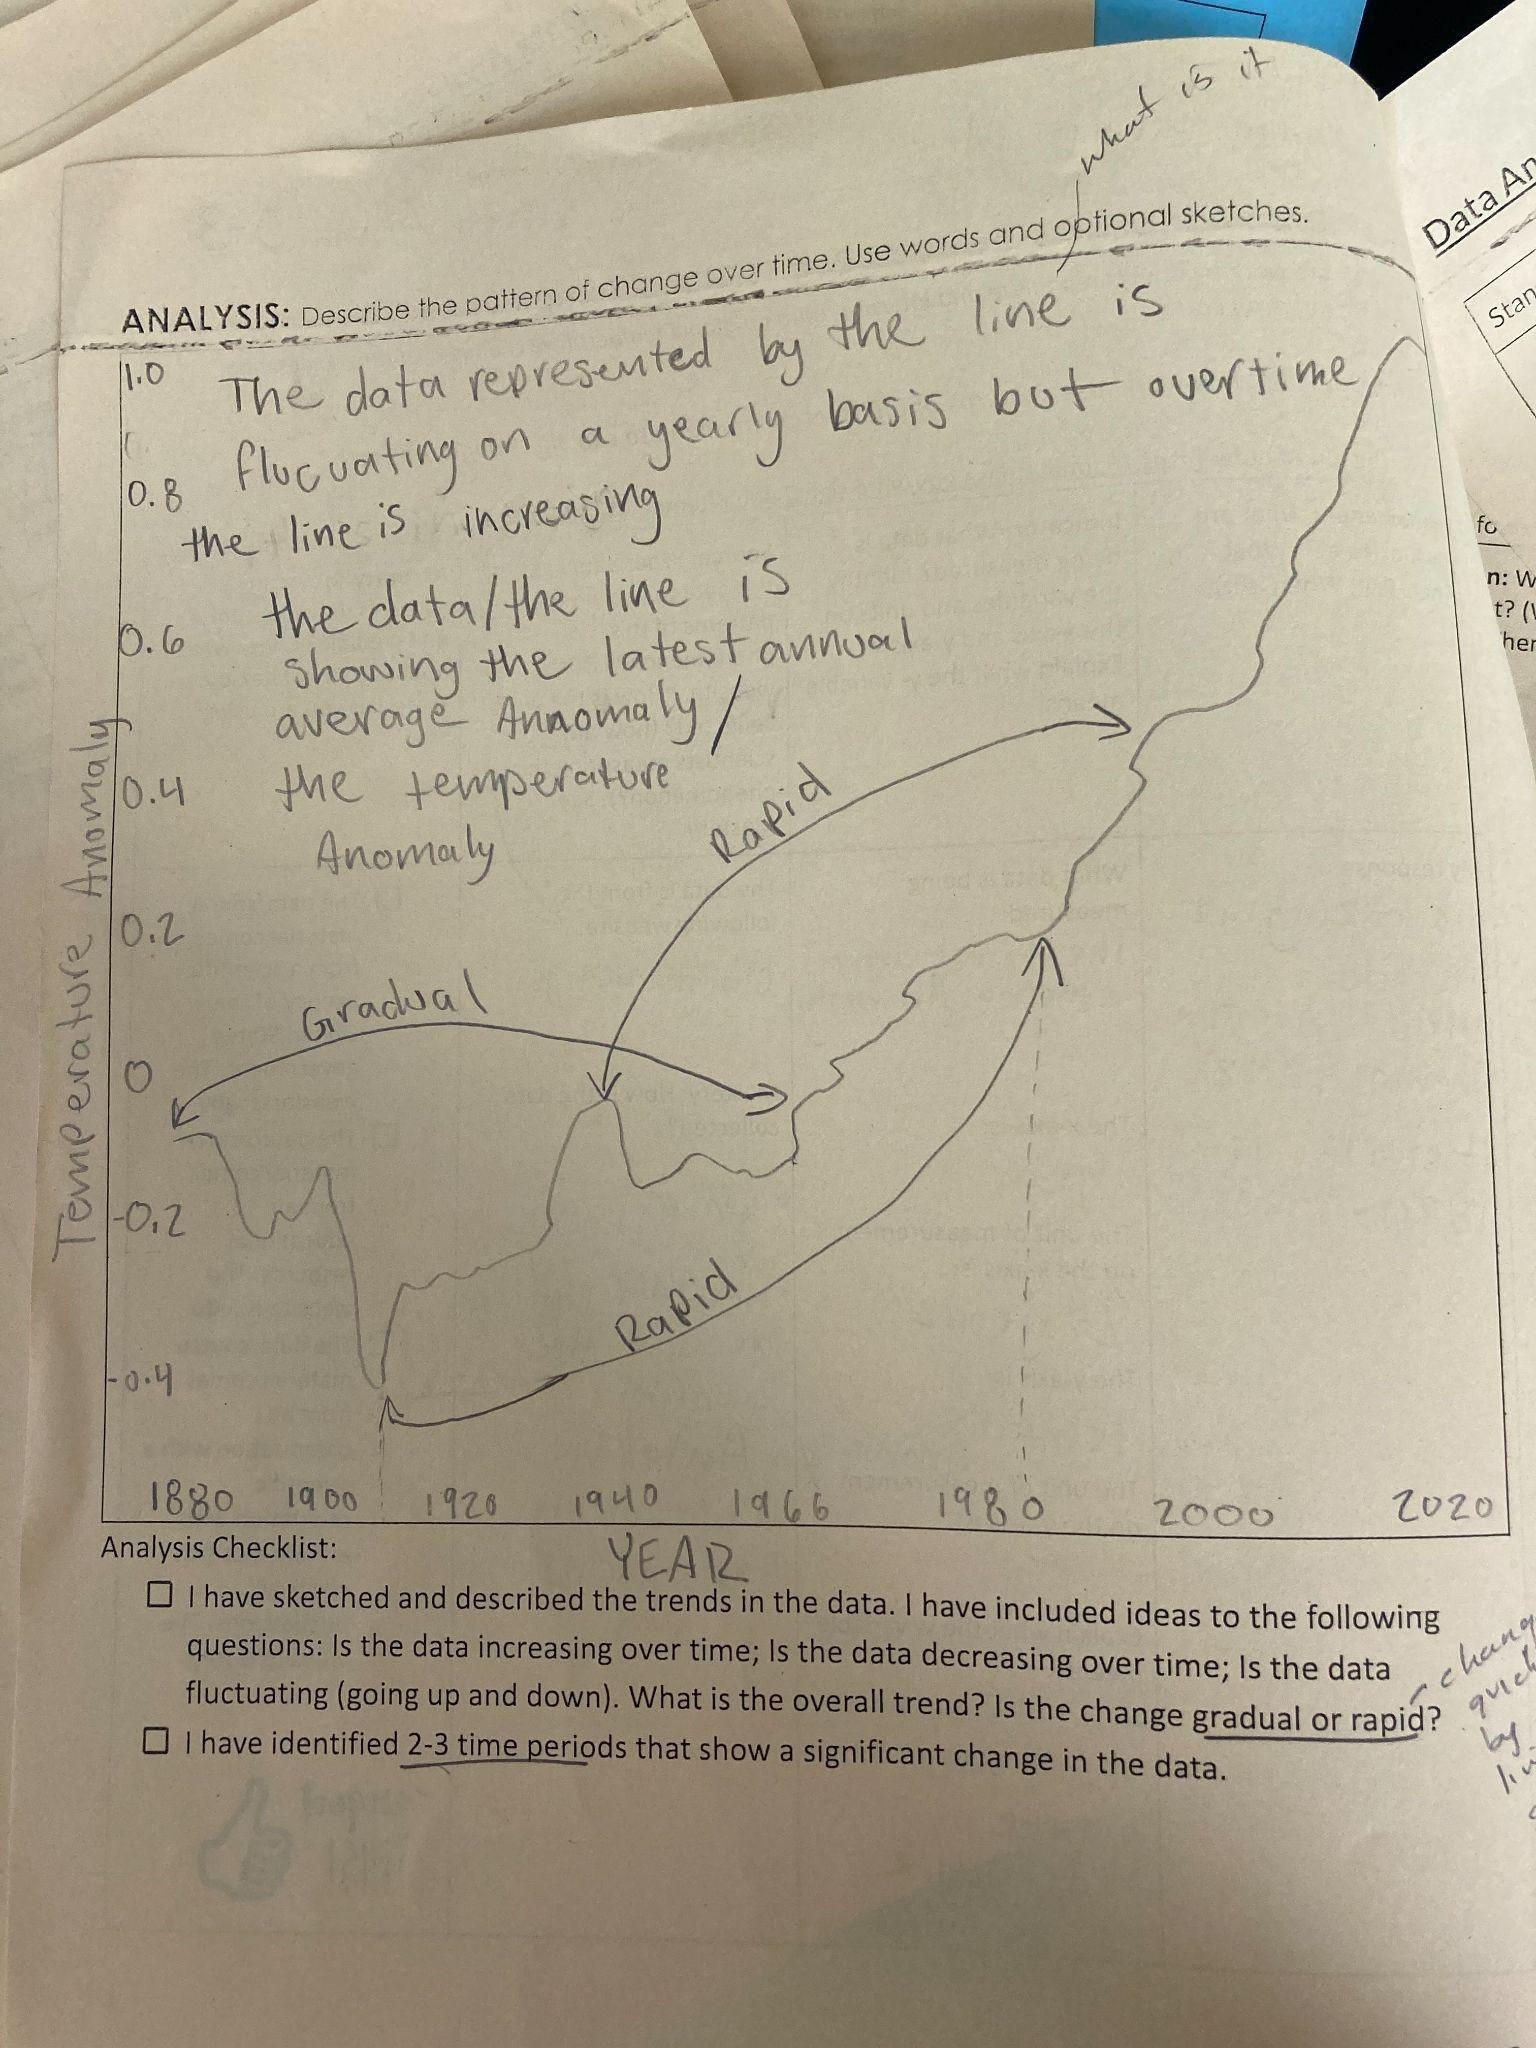 what is it
ANALYSIS: Describe the pattern of change over time. Use words and optional sketches.
1.0
The data represented by the line is
flucuating on a yearly basis but overtime
0.8
the line is increasing
the data/the line is
0.6
showing the latest annual
average Annomaly /
0.4
the temperature
Anomaly
Rapid
0.2
Gradual
0
-0.2
Rapid
-0.4
Temperature Anomaly
1880 1900 1920 1940 1966 1980 2000 2020
YEAR
Analysis Checklist:
I have sketched and described the trends in the data. I have included ideas to the following
questions: Is the data increasing over time; Is the data decreasing over time; Is the data
fluctuating (going up and down). What is the overall trend? Is the change gradual or rapid?
I have identified 2-3 time periods that show a significant change in the data.
by
Data An
Stan
fo
n: W
t? (
her